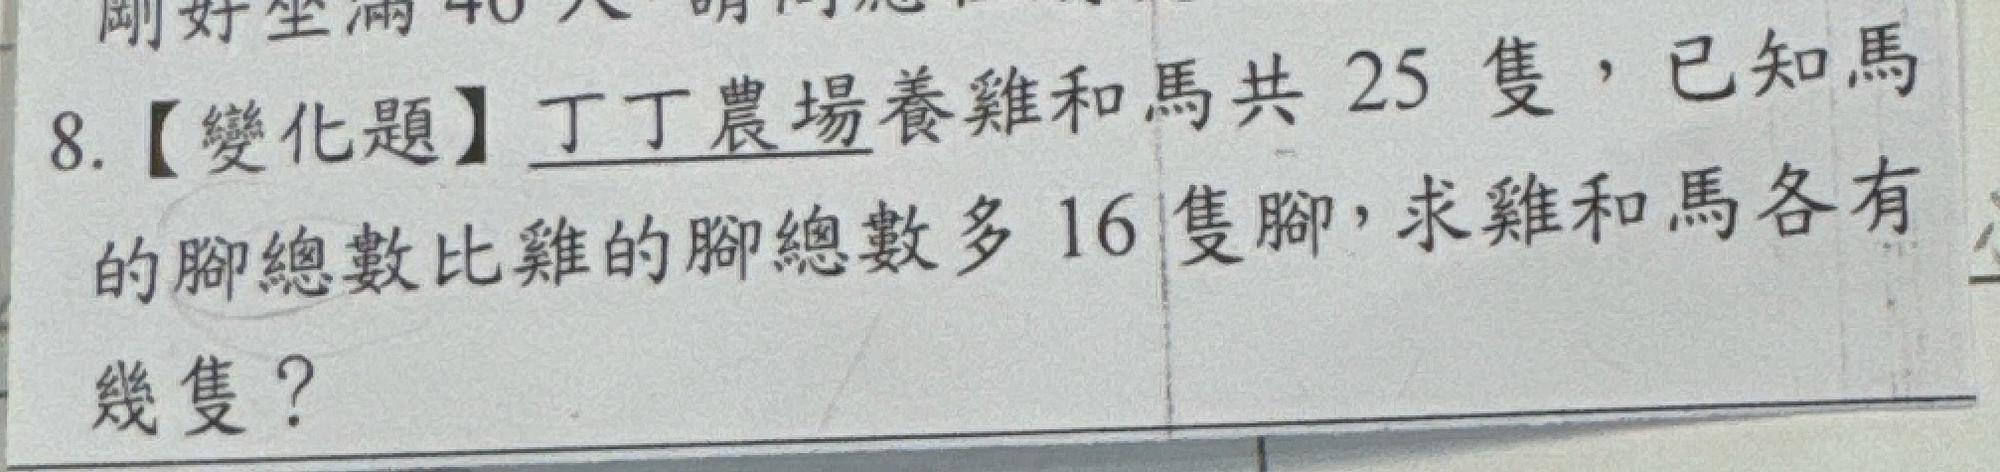 剛好坐滿 40 人
8.【變化題】丁丁農場養雞和馬共 25 隻，已知馬
的腳總數比雞的腳總數多 16 隻腳，求雞和馬各有
幾隻？